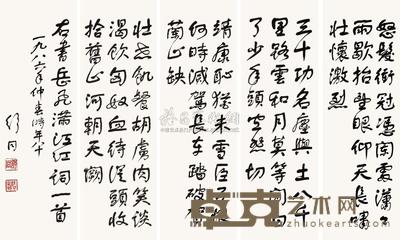 怒髮衝冠憑闌處瀟々
雨歇抬望眼仰天長嘯
壯懷激烈
三十功名塵與土八千
里路雲和月莫等閑白
了少年頭空悲切
靖康恥猶未雪臣子恨
何時滅駕長车踏破賀
蘭山缺
壯志飢餐胡虜肉笑談
渴飲匈奴血待從頭收
拾舊山河朝天闕
右書岳飛滿江紅詞一首
一九八六年仲春 年八十
舒同
艺术网